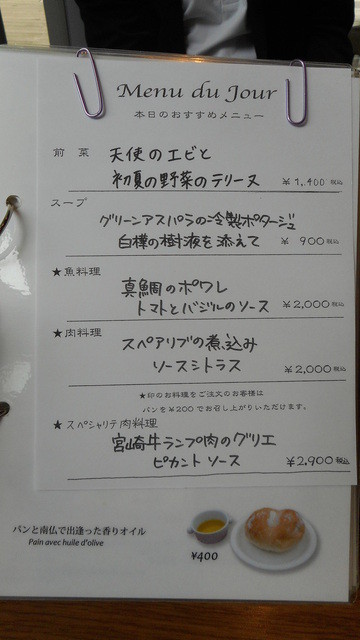 Menu du Jour
本日のおすすめメニュー
前菜 天使のエビと
初夏の野菜のテリーヌ ¥1,400税込
スープ
グリーンアスパラの冷製ポタージュ
白樺の樹液を添えて ¥900税込
★魚料理
真鯛のポワレ
トマトとバジルのソース ¥2,000税込
★肉料理
スペアリブの煮込み
ソースシトラス ¥2,000税込
★印のお料理をご注文のお客様は
パンを¥200でお召し上がりいただけます。
★スペシャリテ肉料理
宮崎牛ランプ肉のグリエ
ピカントソース ¥2,900税込
パンと南仏で出逢った香りオイル
Pain avec huile d'olive
¥400